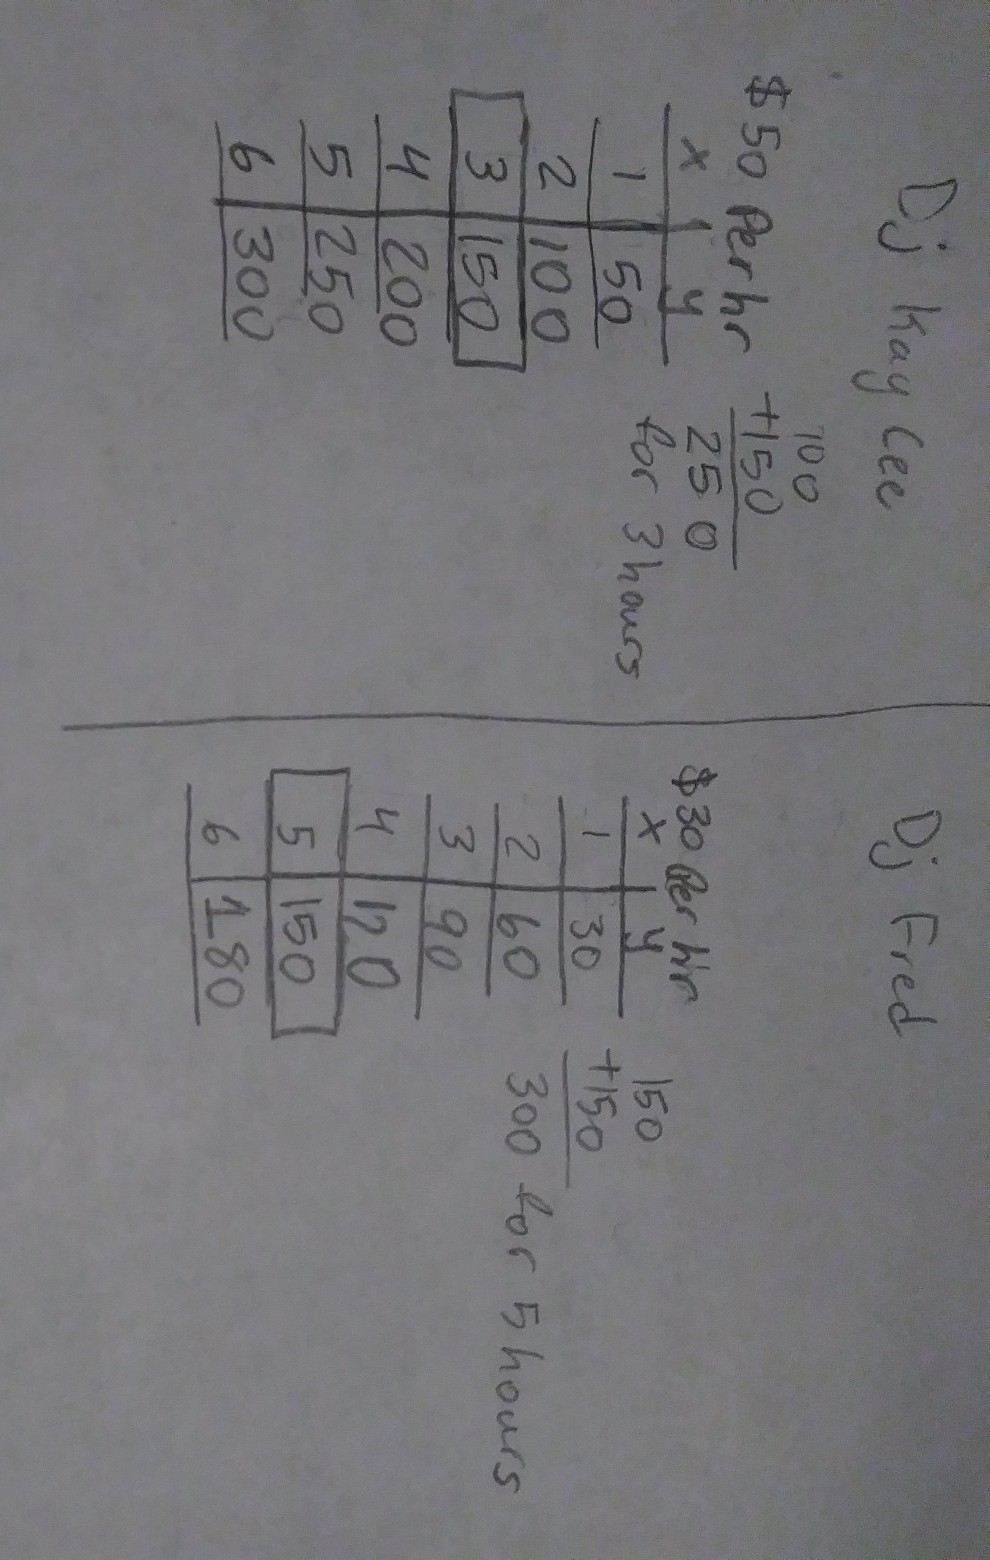 Dj Kay Cee
$50 Per hr
x y
1 50
2 100
3 150
4 200
5 250
6 300
100
+150
250
for 3 hours
Dj Fred
$30 Per hr
x y
1 30
2 60
3 90
4 120
5 150
6 180
150
+150
300 for 5 hours